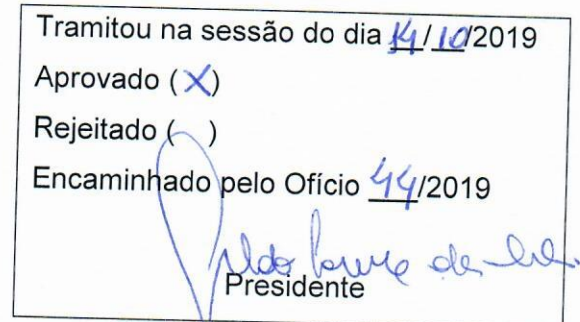 Tramitou na sessão do dia 14/10/2019
Aprovado (X)
Rejeitado ( )
Encaminhado pelo Ofício 44/2019
Presidente